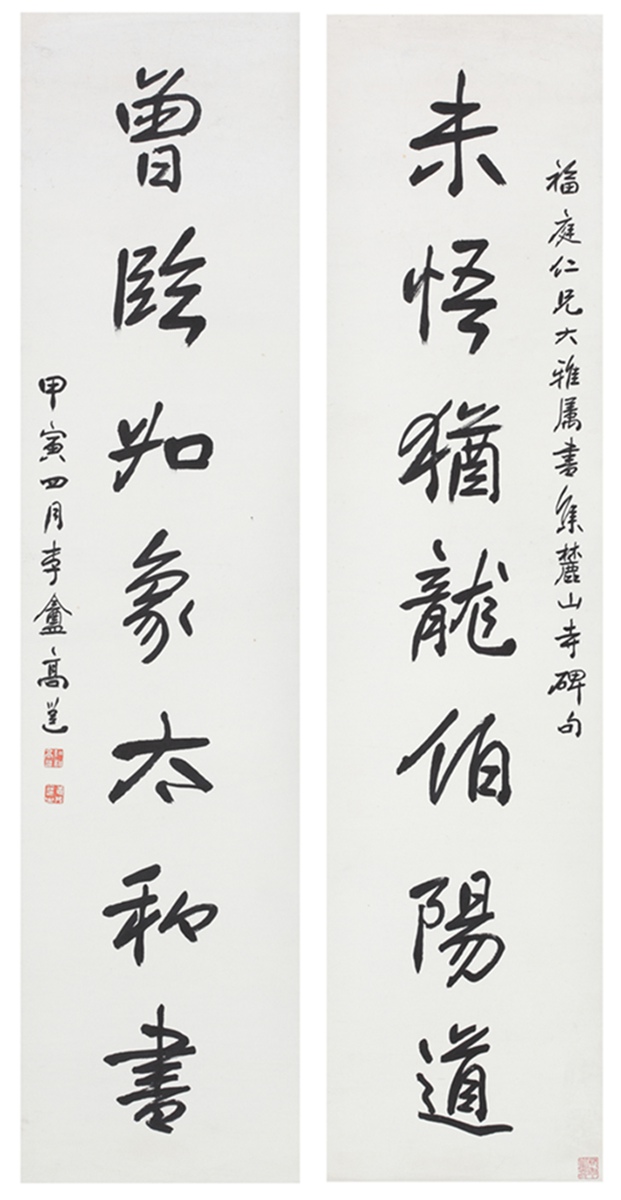 福庭仁兄大雅属書集麓山寺碑句
未悟猶龍伯陽道
曾臨如象太和書
甲寅四月李盦高邕